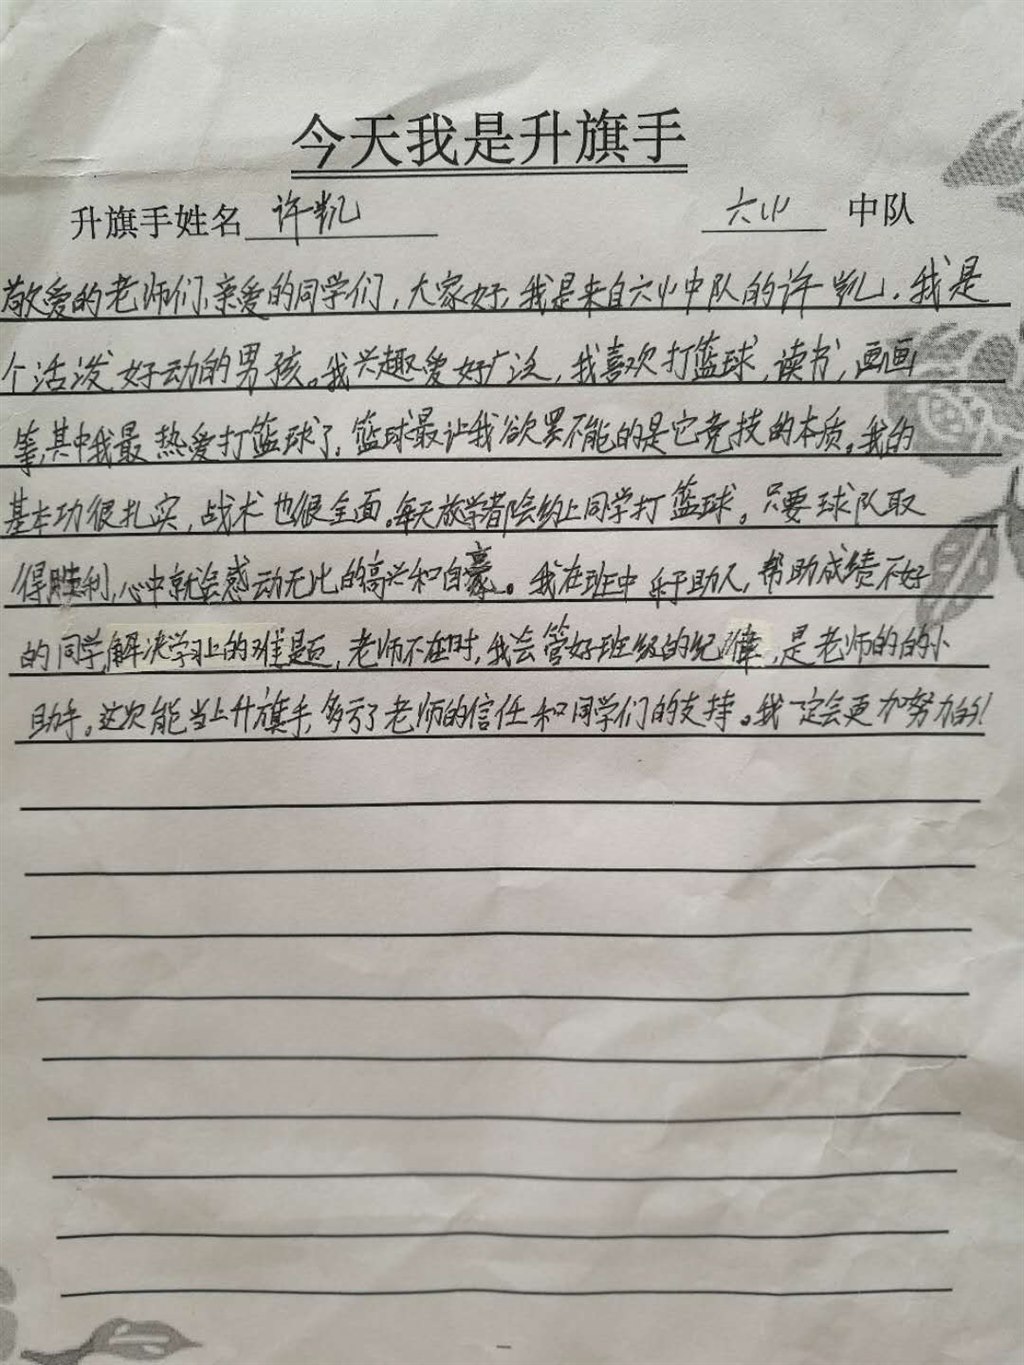 今天我是升旗手
升旗手姓名 许凯 六小 中队
敬爱的老师们、亲爱的同学们,大家好,我是来自六小中队的许凯,我是
个活泼好动的男孩。我兴趣爱好广泛,我喜欢打篮球,读书,画画
等,其中我最热爱打篮球了,篮球最让我欲罢不能的是它竞技的本质。我的
基本功很扎实,战术也很全面。每天放学都会约上同学打篮球。只要球队取
得胜利,心中就会感动无比的高兴和自豪。我在班中乐于助人,帮助成绩不好
的同学解决学习上的难题,老师不在时,我会管好班级的纪律,是老师的的小
助手。这次能当上升旗手,多亏了老师的信任和同学们的支持。我一定会更加努力的!